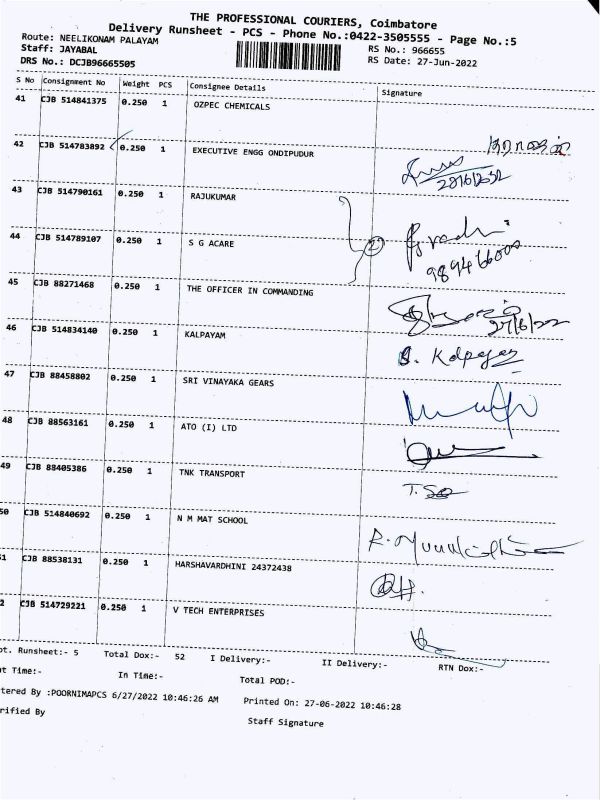 THE PROFESSIONAL COURIERS, Coimbatore
Delivery Runsheet - PCS - Phone No.:0422-3505555 - Page No.:5
Route: NEELIKONAM PALAYAM
RS No.: 966655
Staff: JAYABAL
RS Date: 27-Jun-2022
DRS No.: DCJB96665505
S No Consignment No Weight PCS Consignee Details Signature
41 CJB 514841375 0.250 1 OZPEC CHEMICALS
42 CJB 514783892 0.250 1 EXECUTIVE ENGG ONDIPUDUR
43 CJB 514790161 0.250 1 RAJUKUMAR
44 CJB 514789107 0.250 1 S G ACARE
2
989466000
45 CJB 88271468 0.250 1 THE OFFICER IN COMMANDING
46 CJB 514834140 0.250 1 KALPAYAM
47 CJB 88458802 0.250 1 SRI VINAYAKA GEARS
48 CJB 88563161 0.250 1 ATO (I) LTD
49 CJB 88405386 0.250 1 TNK TRANSPORT
50 CJB 514840692 0.250 1 N M MAT SCHOOL
1 CJB 88538131 0.250 1 HARSHAVARDHINI 24372438
2 CJB 514729221 0.250 1 V TECH ENTERPRISES
ot. Runsheet:- 5 Total Dox:- 52 I Delivery:- II Delivery:- RTN Dox:-
ut Time:- In Time:- Total POD:-
tered By :POORNIMAPCS 6/27/2022 10:46:26 AM Printed On: 27-06-2022 10:46:28
rified By Staff Signature